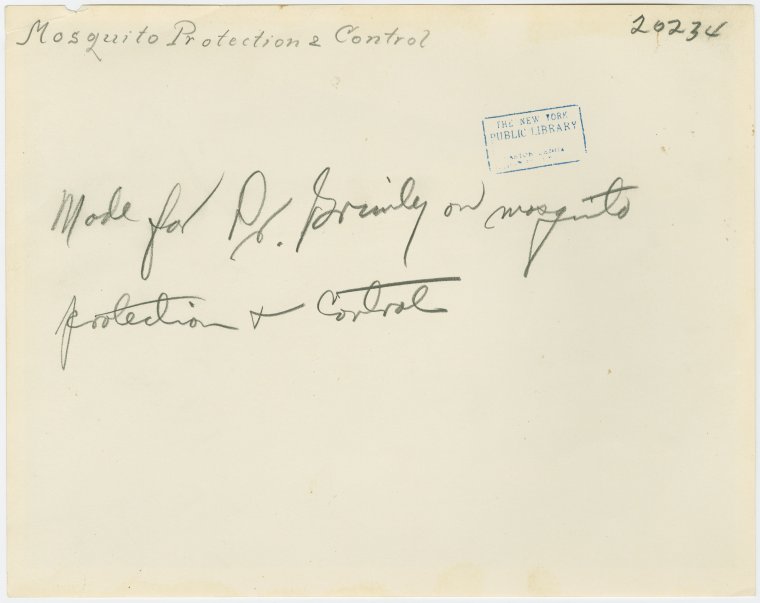 Mosquito Protection & Control
20234
THE NEW YORK
PUBLIC LIBRARY
Made for Dr. on mosquito
protection & Control